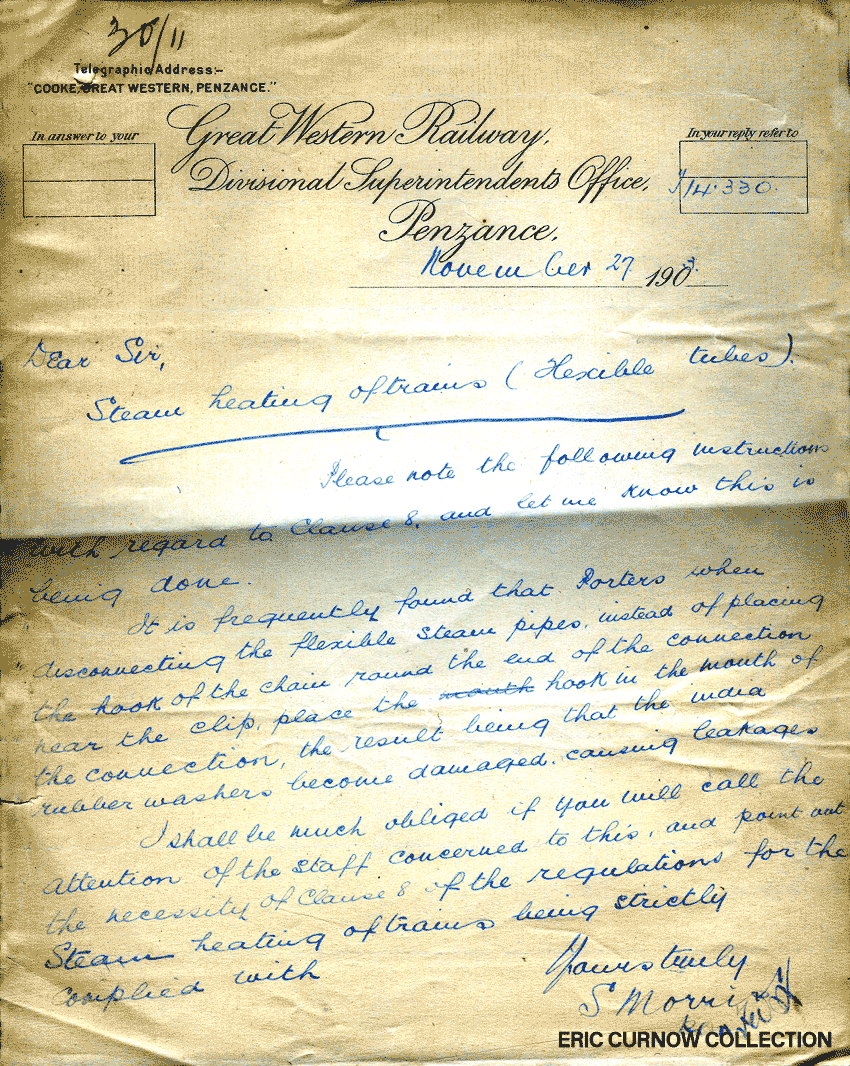 30/11
Telegraphic Address:-
"COOKE, GREAT WESTERN, PENZANCE."
In answer to your
Great Western Railway.
In your reply refer to
Divisional Superintendents Office,
14330.
Penzance,
November 27 1903.
Dear Sir,
Steam heating of trains (Flexible tubes).
Please note the following instructions
with regard to Clause 8, and let me know this is
being done.
It is frequently found that Porters when
disconnecting the flexible steam pipes, instead of placing
the hook of the chain round the end of the connection
near the clip, place the mouth hook in the mouth of
the connection, the result being that the india
rubber washers become damaged, causing leakages
I shall be much obliged if you will call the
attention of the staff concerned to this, and point out
the necessity of Clause 8 of the regulations for the
Steam heating of trains being strictly
complied with
Yours truly
S Morris
ERIC CURNOW COLLECTION